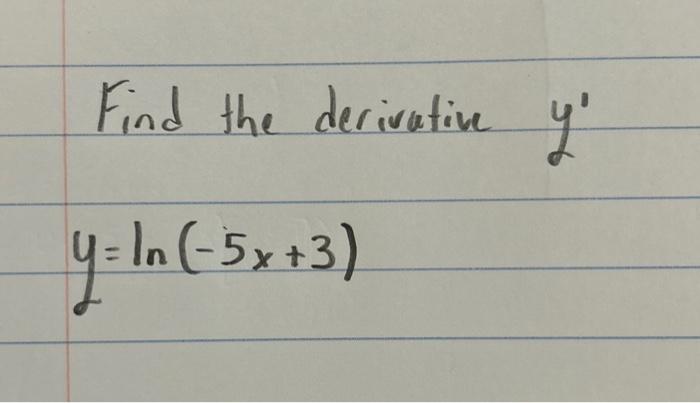 Find the derivative y'
y=ln(-5x+3)